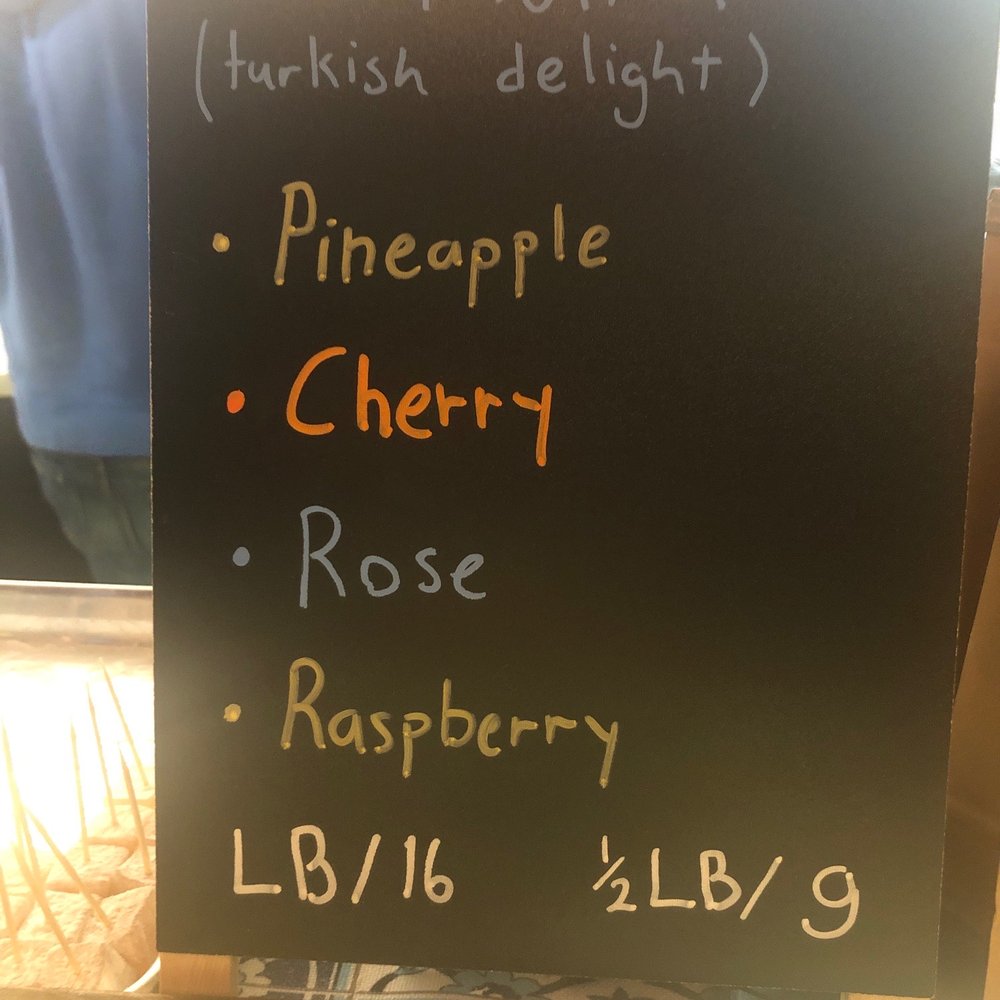 (turkish delight)
• Pineapple
• Cherry
• Rose
• Raspberry
LB/16 ½LB/9